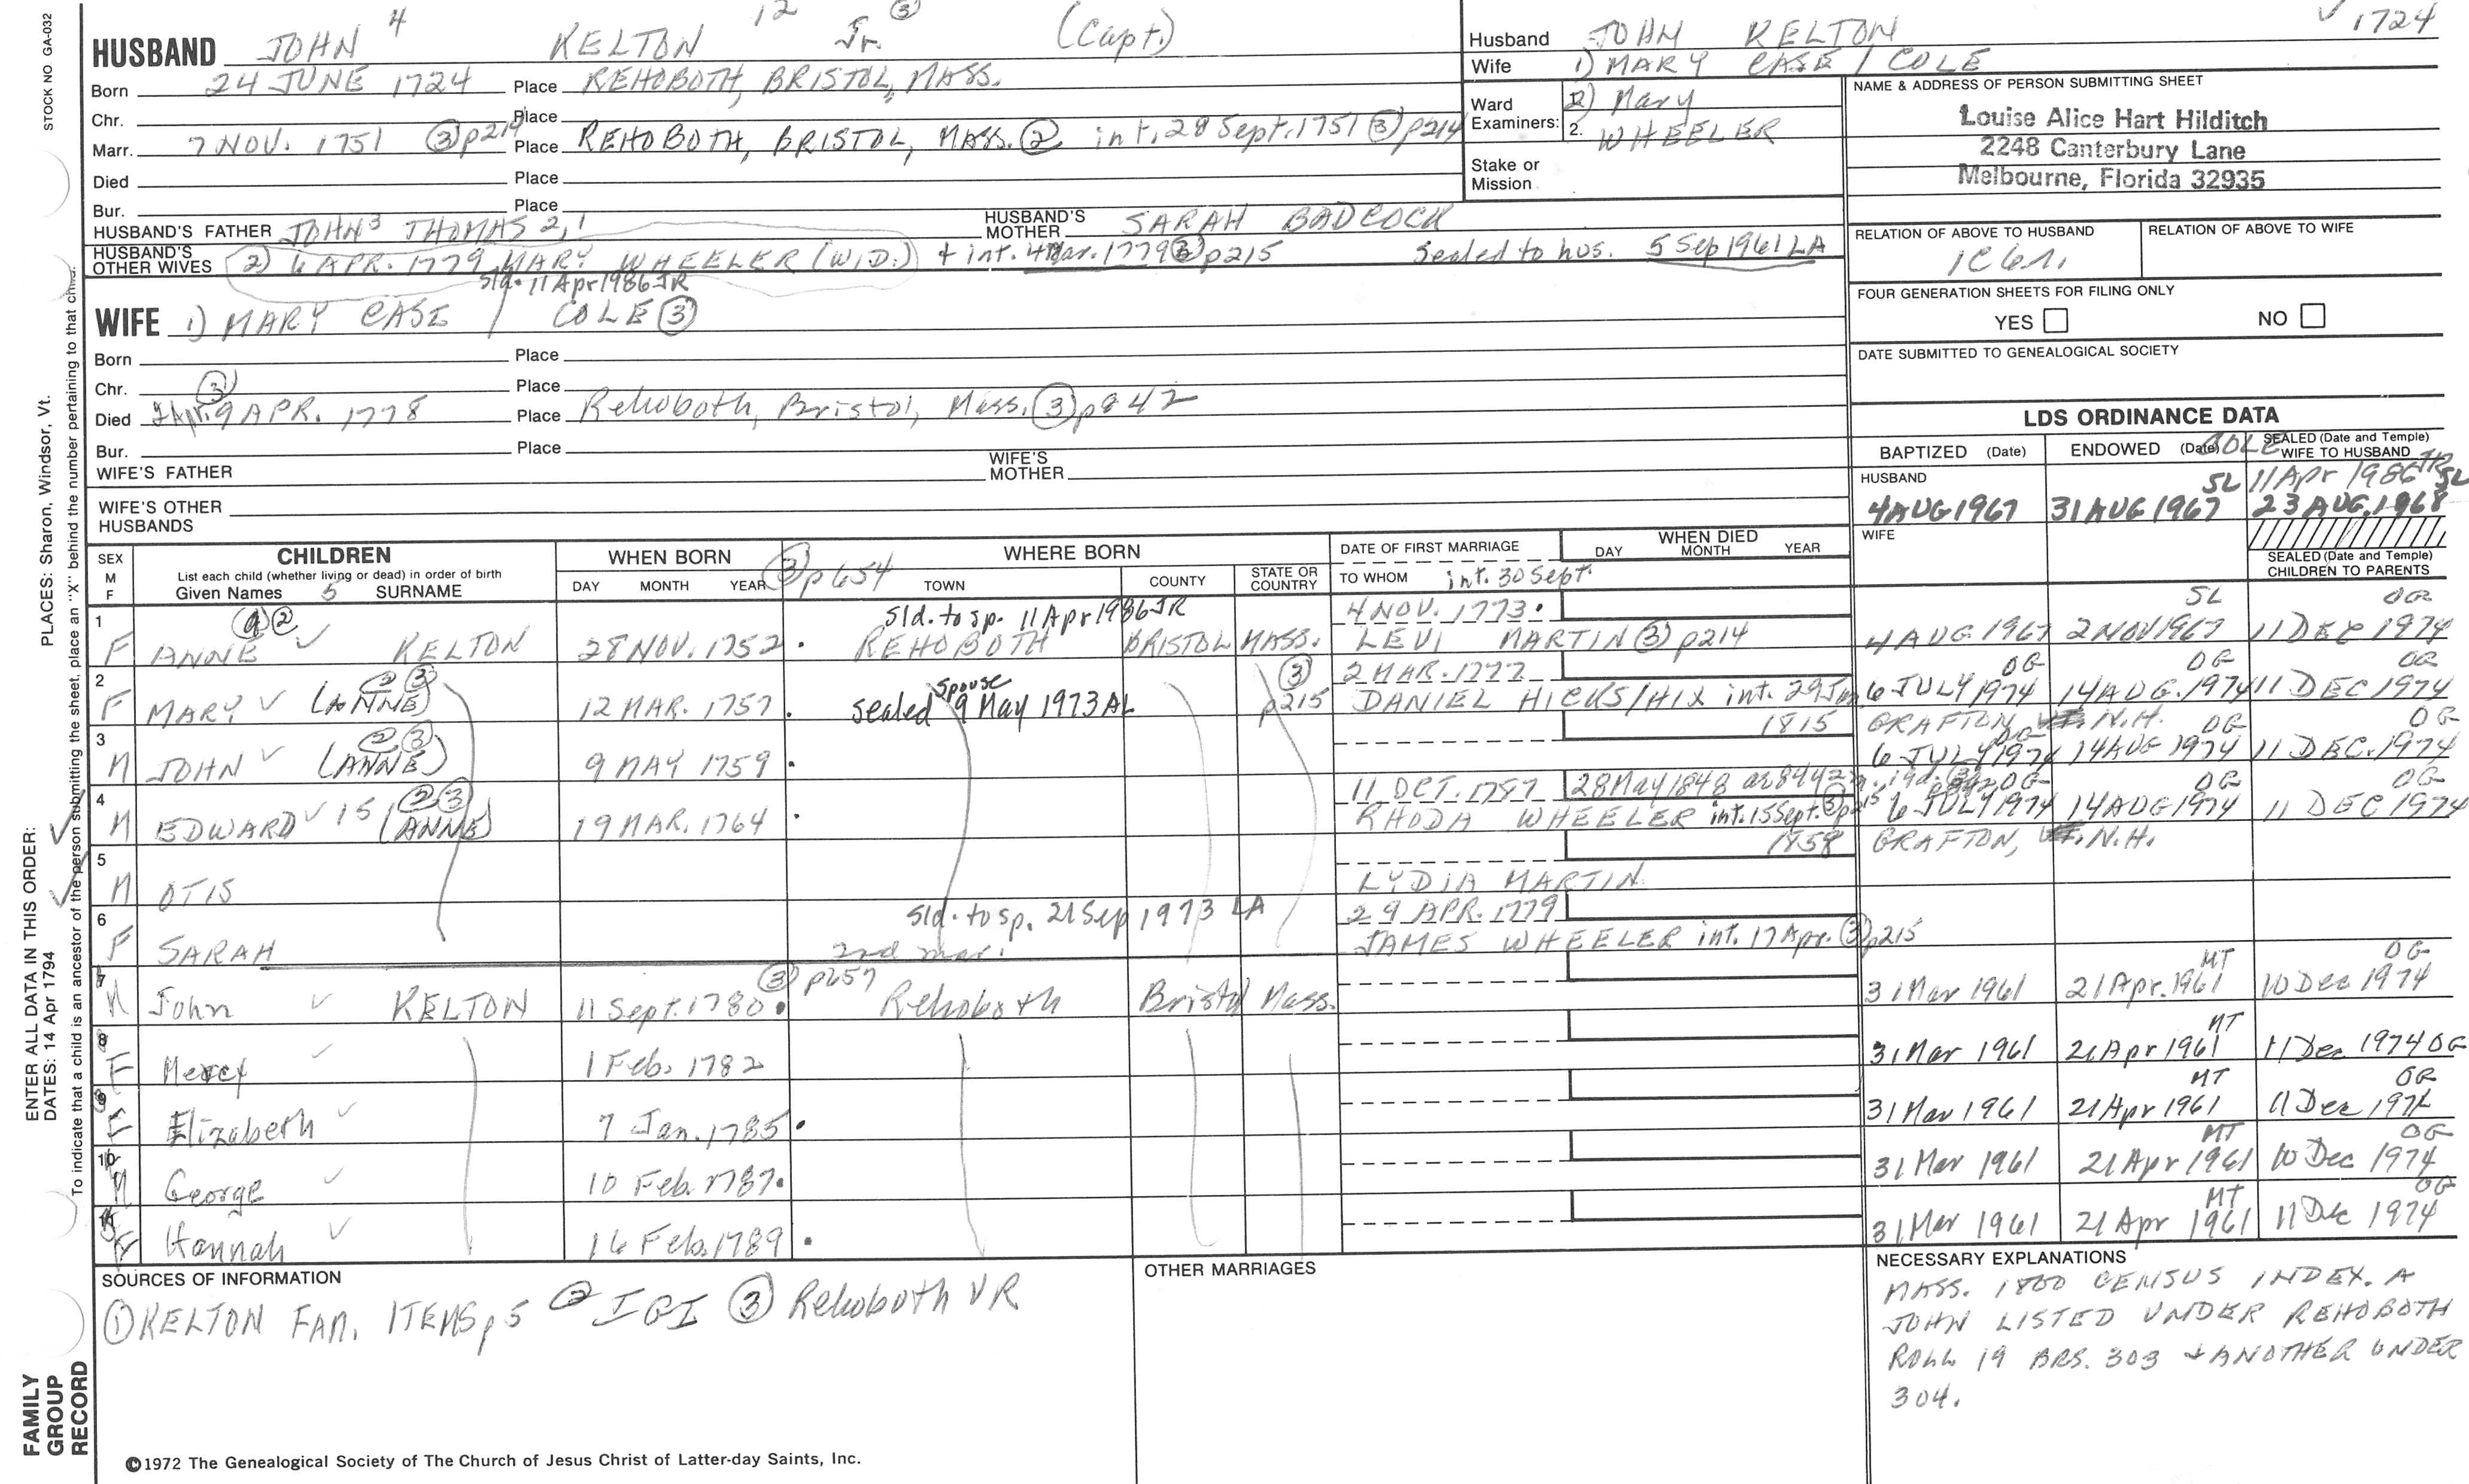 STOCK NO GA-032
HUSBAND JOHN 4 KELTON 12 Jr. ③ (Capt.)
Born 24 JUNE 1724 Place REHOBOTH, BRISTOL, MASS.
Chr. Place
Marr. 7 NOV. 1751 ③ p214 Place REHOBOTH, BRISTOL, MASS. ② int. 28 Sept. 1751 ③ p214
Died Place
Bur. Place
HUSBAND'S FATHER JOHN 3 THOMAS 2, 1 HUSBAND'S MOTHER SARAH BADCOCK
HUSBAND'S OTHER WIVES 2) 6 APR. 1779 MARY WHEELER (WID.) + int. 4 Mar. 1779 ③ p215 Sealed to hus. 5 Sep 1961 LA
Sld. 11 Apr 1986 JR
WIFE 1) MARY CASE / COLE ③
Born Place
Chr. Place
Died ③ 9 APR. 1778 Place Rehoboth, Bristol, Mass. ③ p842
Bur. Place
WIFE'S FATHER WIFE'S MOTHER
WIFE'S OTHER HUSBANDS
Husband JOHN KELTON √ 1724
Wife 1) MARY CASE / COLE
Ward Examiners: 2) Mary
2. WHEELER
Stake or Mission
NAME & ADDRESS OF PERSON SUBMITTING SHEET
Louise Alice Hart Hilditch
2248 Canterbury Lane
Melbourne, Florida 32935
RELATION OF ABOVE TO HUSBAND RELATION OF ABOVE TO WIFE
1C6r.
FOUR GENERATION SHEETS FOR FILING ONLY
YES NO
DATE SUBMITTED TO GENEALOGICAL SOCIETY
LDS ORDINANCE DATA
BAPTIZED (Date) ENDOWED (Date) COLE SEALED (Date and Temple) WIFE TO HUSBAND
HUSBAND SL 11 Apr 1986 JR SL
4 AUG 1967 31 AUG 1967 23 AUG. 1968
WIFE
SEALED (Date and Temple) CHILDREN TO PARENTS
SEX M F CHILDREN WHEN BORN WHERE BORN DATE OF FIRST MARRIAGE WHEN DIED DAY MONTH YEAR
List each child (whether living or dead) in order of birth
Given Names 5 SURNAME DAY MONTH YEAR ③ p654 TOWN COUNTY STATE OR COUNTRY TO WHOM int. 30 Sept.
1 ② Sld. to sp. 11 Apr 1986 JR 4 NOV. 1773 SL OG
F ANNE √ KELTON 28 NOV. 1752 REHOBOTH BRISTOL MASS. LEVI MARTIN ③ p214 4 AUG 1967 2 NOV 1967 11 DEC 1974
2 ② ③ ③ 2 MAR. 1777 OG OG OG
F MARY √ (ANNE) 12 MAR. 1757 sealed spouse 9 May 1973 AL p215 DANIEL HICKS/HIX int. 29 Jan 6 JULY 1974 14 AUG. 1974 11 DEC 1974
3 ② ③ 1815 GRAFTON, N.H. OG OG OG
M JOHN √ (ANNE) 9 MAY 1759 6 JULY 1974 14 AUG 1974 11 DEC. 1974
4 ② ③ 11 OCT. 1787 28 May 1848 as 84 y 2 m. 19 d. ③ p842 OG OG OG
M EDWARD √ 15 (ANNE) 19 MAR. 1764 RHODA WHEELER int. 15 Sept. ③ p215 6 JULY 1974 14 AUG 1974 11 DEC 1974
5 1858 GRAFTON, N.H.
M OTIS LYDIA MARTIN
6 Sld. to sp. 21 Sep 1973 LA 29 APR. 1779
F SARAH JAMES WHEELER int. 17 Apr. ③ p215
2nd mar.
7 ③ p657 MT OG
M John √ KELTON 11 Sept. 1780 Rehoboth Bristol Mass. 31 Mar 1961 21 Apr. 1961 10 Dec 1974
8 MT
F Mercy √ 1 Feb. 1782 31 Mar 1961 21 Apr 1961 11 Dec 1974 OG
9 MT OG
F Elizabeth √ 7 Jan. 1785 31 Mar 1961 21 Apr 1961 11 Dec 1974
10 MT OG
M George √ 10 Feb. 1787 31 Mar 1961 21 Apr 1961 10 Dec 1974
11 MT OG
F Hannah √ 16 Feb. 1789 31 Mar 1961 21 Apr 1961 11 Dec 1974
SOURCES OF INFORMATION
① KELTON FAM. ITEMS p5 ② IGI ③ Rehoboth VR
OTHER MARRIAGES
NECESSARY EXPLANATIONS
MASS. 1800 CENSUS INDEX. A
JOHN LISTED UNDER REHOBOTH
ROLL 19 BRS. 303 + ANOTHER UNDER
304.
©1972 The Genealogical Society of The Church of Jesus Christ of Latter-day Saints, Inc.
FAMILY GROUP RECORD
ENTER ALL DATA IN THIS ORDER:
DATES: 14 Apr 1794
PLACES: Sharon, Windsor, Vt.
To indicate that a child is an ancestor of the person submitting the sheet, place an "X" behind the number pertaining to that child.